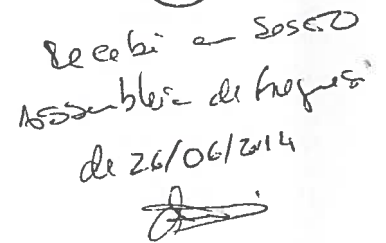 Recebi em Sessão
Assembleia de Freguesia
de 26/06/2014